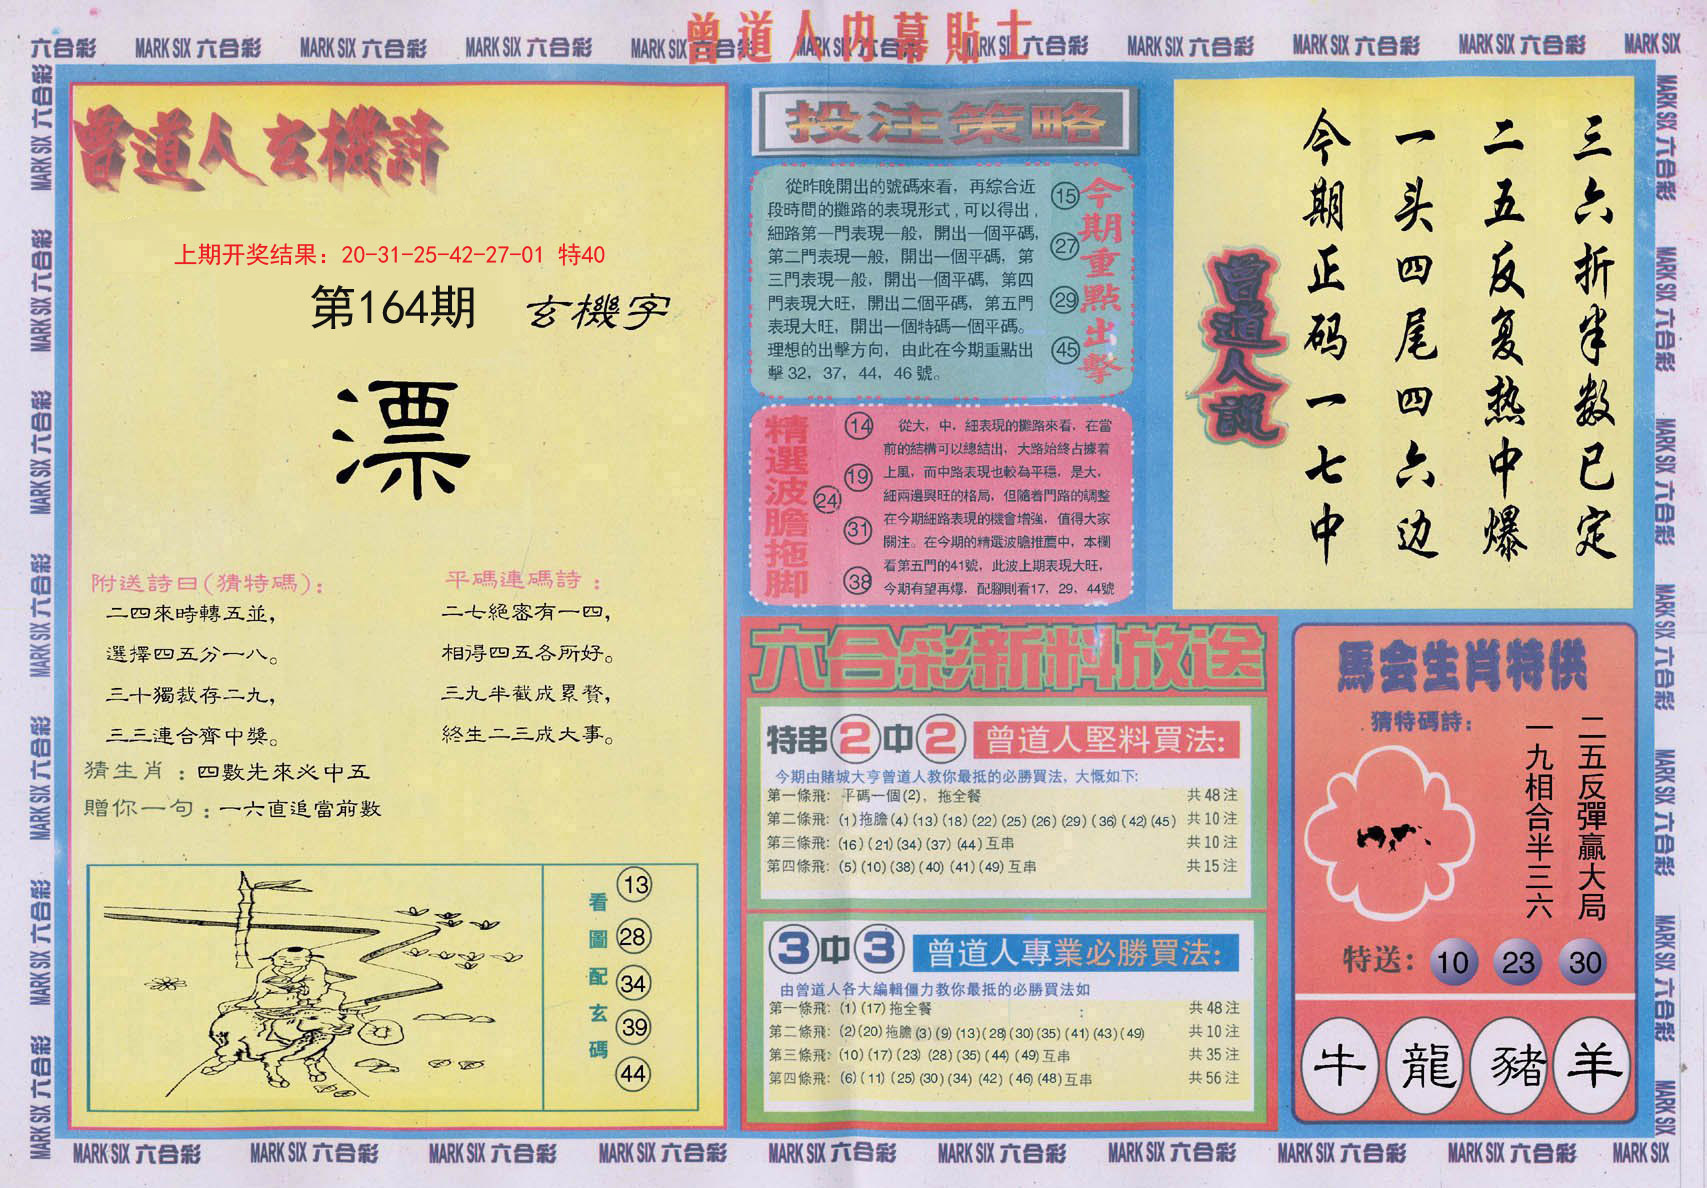 曾道人内幕貼士
六合彩 MARK SIX 六合彩 MARK SIX 六合彩 MARK SIX 六合彩 MARK SIX 六合彩 MARK SIX 六合彩 MARK SIX 六合彩 MARK SIX 六合彩 MARK SIX 六合彩 MARK SIX 六合彩 MARK SIX
曾道人玄機詩
上期开奖结果：20-31-25-42-27-01 特40
第164期 玄機字
漂
附送詩曰(猜特碼)：
二四來時轉五並，
選擇四五分一八。
三十獨裁存二九，
三三連合齊中獎。
平碼連碼詩：
二七絕密有一四，
相得四五各所好。
三九半截成累贅，
終生二三成大事。
猜生肖：四數先來必中五
贈你一句：一六直追當前數
看圖配玄碼
13
28
34
39
44
投注策略
從昨晚開出的號碼來看，再綜合近
段時間的攤路的表現形式，可以得出，
細路第一門表現一般，開出一個平碼，
第二門表現一般，開出一個平碼，第
三門表現一般，開出一個平碼，第四
門表現大旺，開出二個平碼，第五門
表現大旺，開出一個特碼一個平碼。
理想的出擊方向，由此在今期重點出
擊 32，37，44，46 號。
15
27
29
45
今期重點出擊
精選波膽拖脚
14
19
24
31
38
從大，中，細表現的攤路來看，在當
前的結構可以總結出，大路始終占據着
上風，而中路表現也較為平穩，是大，
細兩邊興旺的格局，但隨着門路的調整
在今期細路表現的機會增強，值得大家
關注。在今期的精選波膽推薦中，本欄
看第五門的41號，此波上期表現大旺，
今期有望再爆，配腳則看17，29，44號
曾道人説
三六折半数已定
二五反复热中爆
一头四尾四六边
今期正码一七中
六合彩新料放送
特串2中2 曾道人堅料買法：
今期由賭城大亨曾道人教你最抵的必勝買法，大慨如下：
第一條飛：平碼一個(2)，拖全餐 共 48 注
第二條飛：(1)拖膽(4)(13)(18)(22)(25)(26)(29)(36)(42)(45) 共 10 注
第三條飛：(16)(21)(34)(37)(44)互串 共 10 注
第四條飛：(5)(10)(38)(40)(41)(49)互串 共 15 注
3中3 曾道人專業必勝買法：
由曾道人各大編輯僵力教你最抵的必勝買法如
第一條飛：(1)(17)拖全餐 共 48 注
第二條飛：(2)(20)拖膽(3)(9)(13)(28)(30)(35)(41)(43)(49) 共 10 注
第三條飛：(10)(17)(23)(28)(35)(44)(49)互串 共 35 注
第四條飛：(6)(11)(25)(30)(34)(42)(46)(48)互串 共 56 注
馬会生肖特供
猜特碼詩：
二五反彈贏大局
一九相合半三六
特送：10 23 30
牛 龍 豬 羊
MARK SIX 六合彩 MARK SIX 六合彩 MARK SIX 六合彩 MARK SIX 六合彩 MARK SIX 六合彩 MARK SIX 六合彩 MARK SIX 六合彩 MARK SIX 六合彩 MARK SIX 六合彩 MARK SIX